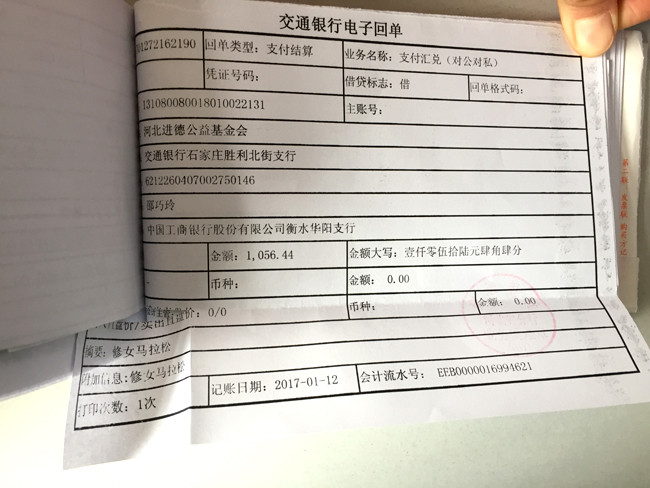 交通银行电子回单
1272162190 回单类型：支付结算 业务名称：支付汇兑（对公对私）
凭证号码： 借贷标志：借 回单格式码：
131080080018010022131 主账号：
河北进德公益基金会
交通银行石家庄胜利北街支行
6212260407002750146
邵巧玲
中国工商银行股份有限公司衡水华阳支行
金额：1,056.44 金额大写：壹仟零伍拾陆元肆角肆分
币种： 金额：0.00
价：0/0 币种： 金额：0.00
摘要：修女马拉松
附加信息：修女马拉松
打印次数：1次 记账日期：2017-01-12 会计流水号：EEB0000016994621